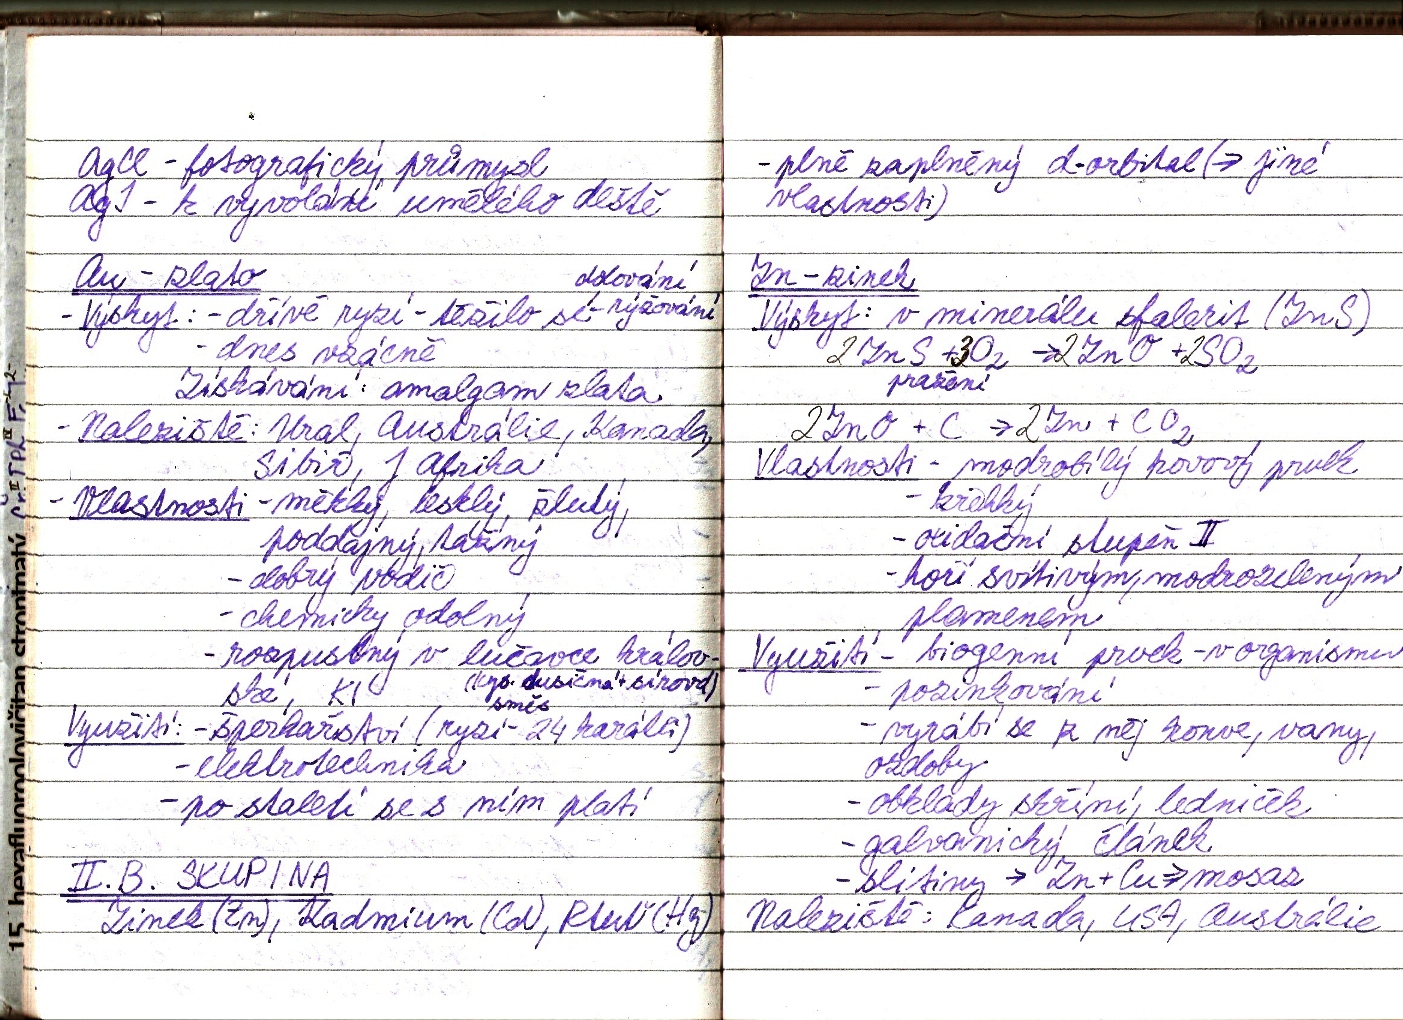 AgCl - fotografický průmysl
AgI - k vyvolání umělého deště
Au - zlato
dolování
- Výskyt: - dřívě ryzí - těžilo se - rýžování
- dnes vzácně
Získávání: amalgam zlata
- Naleziště: Ural, Austrálie, Kanada,
Sibiř, J Afrika
- Vlastnosti - měkký, lesklý, žlutý,
poddajný, tažný
- dobrý vodič
- chemicky odolný
- rozpustný v lučavce králov-
ské, KI (kys. dusičná + sírová)
směs
Využití: - šperkařství (ryzí - 24 karátů)
- elektrotechnika
- po staletí se s ním platí
II. B. SKUPINA
Zinek (Zn), Kadmium (Cd), Rtuť (Hg)
15 hexafluoromolovičitan strontnatý
- plně zaplněný d-orbital (→ jiné
vlastnosti)
Zn - zinek
Výskyt: v minerálu sfalerit (ZnS)
2ZnS + 3O₂ → 2ZnO + 2SO₂
pražení
2ZnO + C → 2Zn + CO₂
Vlastnosti - modrobílý kovový prvek
- křehký
- oxidační stupeň II
- hoří svítivým, modrozeleným
plamenem
Využití - biogenní prvek - v organismu
- pozinkování
- vyrábí se z něj konve, vany,
ozdoby
- obklady skříní, ledniček
- galvanický článek
- slitiny → Zn + Cu → mosaz
Naleziště: Kanada, USA, Austrálie